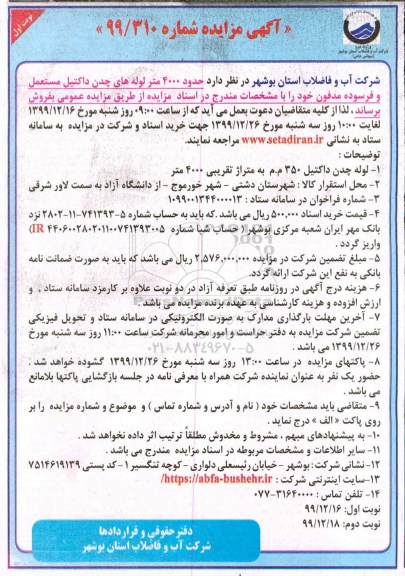 نوبت اول
« آگهی مزایده شماره ۹۹/۳۱۰ »
شرکت آب و فاضلاب استان بوشهر
(سهامی خاص)
شرکت آب و فاضلاب استان بوشهر در نظر دارد حدود ۴۰۰۰ متر لوله های چدن داکتیل مستعمل
و فرسوده مدفون خود را با مشخصات مندرج در اسناد مزایده از طریق مزایده عمومی بفروش
برساند ، لذا از کلیه متقاضیان دعوت بعمل می آید که از ساعت ۰۹:۰۰ روز شنبه مورخ ۱۳۹۹/۱۲/۱۶
لغایت ۱۰:۰۰ روز سه شنبه مورخ ۱۳۹۹/۱۲/۲۶ جهت خرید اسناد و شرکت در مزایده به سامانه
ستاد به نشانی www.setadiran.ir مراجعه نمایند.
توضیحات :
۱- لوله چدن داکتیل ۳۵۰ م.م به متراژ تقریبی ۴۰۰۰ متر
۲- محل استقرار کالا : شهرستان دشتی - شهر خورموج - از دانشگاه آزاد به سمت لاور شرقی
۳- شماره فراخوان در سامانه ستاد : ۱۰۹۹۰۰۱۳۴۴۰۰۰۰۱۳
۴- قیمت خرید اسناد ۵۰۰,۰۰۰ ریال می باشد .که باید به حساب شماره ۵-۷۴۱۳۹۳-۱۱-۲۸۰۲ نزد
بانک مهر ایران شعبه مرکزی بوشهر ( حساب شبا شماره IR ۴۴۰۶۰۰۲۸۰۲۰۱۱۰۰۷۴۱۳۹۳۰۰۵)
واریز گردد .
۵- مبلغ تضمین شرکت در مزایده ۲,۵۷۶,۰۰۰,۰۰۰ ریال می باشد که باید به صورت ضمانت نامه
بانکی به نفع این شرکت ارائه گردد.
۶- هزینه درج آگهی در روزنامه طبق تعرفه آزاد در دو نوبت علاوه بر کارمزد سامانه ستاد ،
ارزش افزوده و هزینه کارشناسی به عهده برنده مزایده می باشد .
۷- آخرین مهلت بارگذاری مدارک به صورت الکترونیکی در سامانه ستاد و تحویل فیزیکی
تضمین شرکت مزایده به دفتر حراست و امور محرمانه شرکت ساعت ۱۱:۰۰ روز سه شنبه مورخ
۱۳۹۹/۱۲/۲۶ می باشد .
۸- پاکتهای مزایده در ساعت ۱۳:۰۰ روز سه شنبه مورخ ۱۳۹۹/۱۲/۲۶ گشوده خواهد شد .
حضور یک نفر به عنوان نماینده شرکت همراه با معرفی نامه در جلسه بازگشایی پاکتها بلامانع
می باشد .
۹- متقاضی باید مشخصات خود ( نام و آدرس و شماره تماس ) و موضوع و شماره مزایده را بر
روی پاکت « الف » درج نماید .
۱۰- به پیشنهادهای مبهم ، مشروط و مخدوش مطلقاً ترتیب اثر داده نخواهد شد .
۱۱- سایر اطلاعات و مشخصات مربوطه در اسناد مزایده مندرج می باشد .
۱۲- نشانی شرکت : بوشهر - خیابان رئیسعلی دلواری - کوچه تنگسیر ۱ - کد پستی ۷۵۱۴۶۱۹۱۳۹
۱۳- سایت اینترنتی شرکت : https://abfa-bushehr.ir/
۱۴- تلفن تماس : ۳۱۶۴۰۰۰۰-۰۷۷
نوبت اول: ۹۹/۱۲/۱۶
نوبت دوم: ۹۹/۱۲/۱۸
دفتر حقوقی و قراردادها
شرکت آب و فاضلاب استان بوشهر
۰۲۱-۸۸۳۴۹۶۷۰-۵